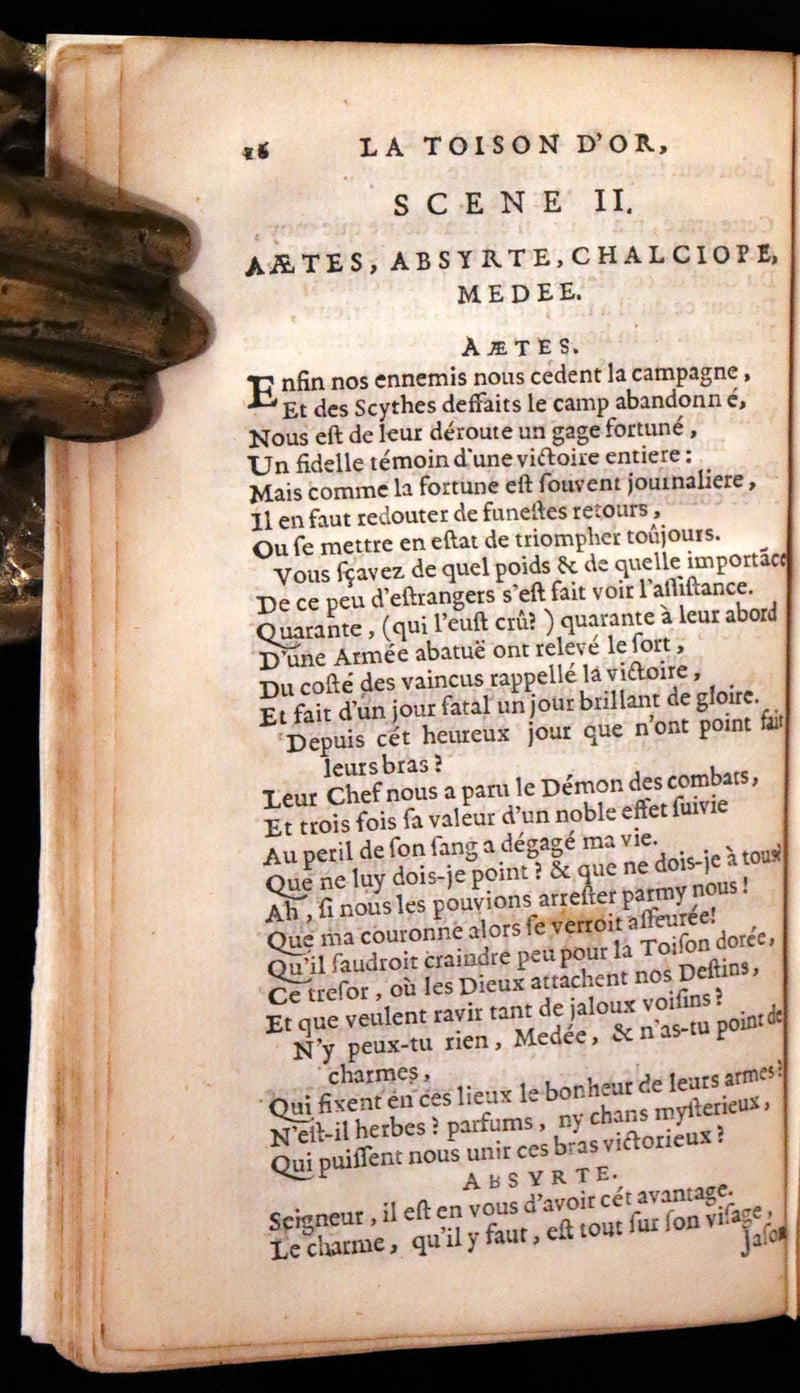 26 LA TOISON D'OR,
SCENE II.
AÆTES, ABSYRTE, CHALCIOPE,
MEDEE.
AÆTES.
Enfin nos ennemis nous cedent la campagne,
Et des Scythes deffaits le camp abandonn é,
Nous eſt de leur déroute un gage fortuné,
Un fidelle témoin d'une victoire entiere :
Mais comme la fortune eſt ſouvent journaliere,
Il en faut redouter de funeſtes retours,
Ou ſe mettre en eſtat de triompher toûjours.
Vous ſçavez de quel poids & de quelle importāce
De ce peu d'eſtrangers s'eſt fait voir l'aſſiſtance.
Quarante, (qui l'euſt crû? ) quarante à leur abord
D'une Armée abatuë ont relevé le ſort,
Du coſté des vaincus rappellé la victoire,
Et fait d'un jour fatal un jour brillant de gloire.
Depuis cét heureux jour que n'ont point fait
leurs bras ?
Leur Chef nous a paru le Démon des combats,
Et trois fois ſa valeur d'un noble effet ſuivie
Au peril de ſon ſang a dégagé ma vie.
Que ne luy dois-je point ? & que ne dois-je à tous?
Ah, ſi nous les pouvions arreſter parmy nous !
Que ma couronne alors ſe verroit aſſeurée!
Qu'il faudroit craindre peu pour la Toiſon dorée,
Ce treſor, où les Dieux attachent nos Deſtins,
Et que veulent ravir tant de jaloux voiſins ?
N'y peux-tu rien, Medée, & n'as-tu point de
charmes,
Qui fixent en ces lieux le bonheur de leurs armes?
N'eſt-il herbes ? parfums, ny chans myſterieux,
Qui puiſſent nous unir ces bras victorieux ?
ABSYRTE.
Seigneur, il eſt en vous d'avoir cét avantage.
Le charme, qu'il y faut, eſt tout ſur ſon viſage,
Jaſon